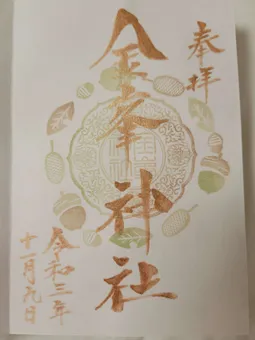 奉拝
金峯神社
令和三年
十一月九日